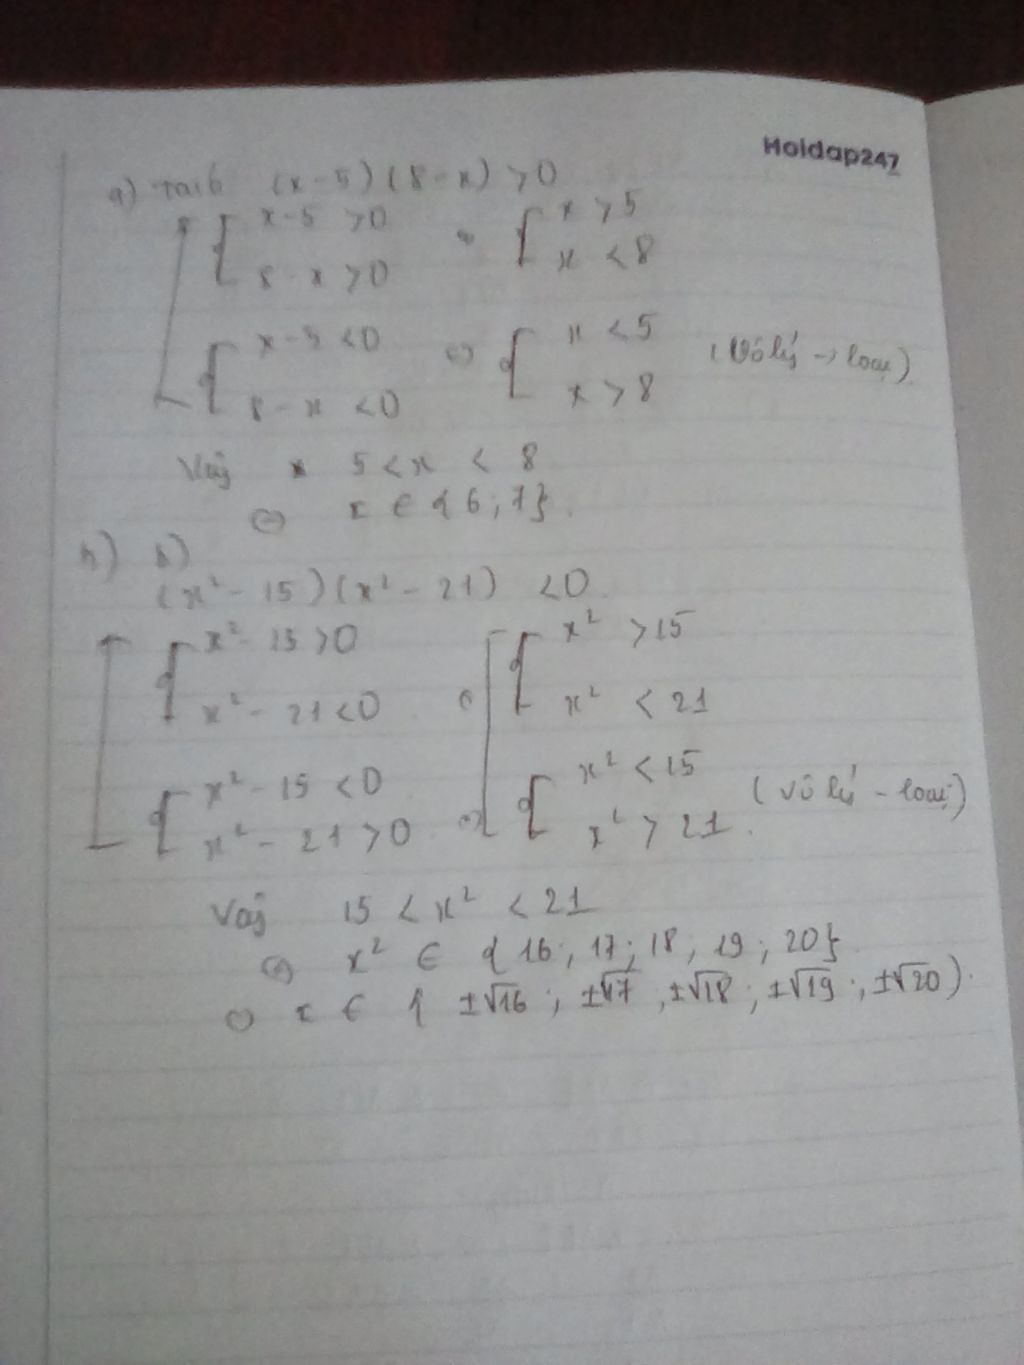 Hoidap247
a) (x-5)(8-x) >0
x-5 >0 x >5
8-x >0 x <8
x-5 <0 ⇔ x <5
8-x <0 x >8 (Vô lý → loại)
Vậy 5 <x < 8
⇔ x ∈ {6;7}.
b) b)
(x²-15)(x²-21) <0
x²-15 >0 x² >15
x²-21 <0 x² <21
x²-15 <0 x² <15
x²-21 >0 ⇔ x² >21. (vô lý - loại)
Vậy 15 <x² <21
⇔ x² ∈ {16; 17; 18, 19; 20}
⇔ x ∈ { ±√16; ±√17, ±√18; ±√19; ±√20).